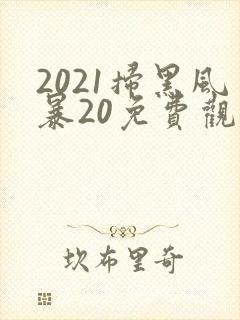 2021掃黑风
暴20免費觀
坎布里奇